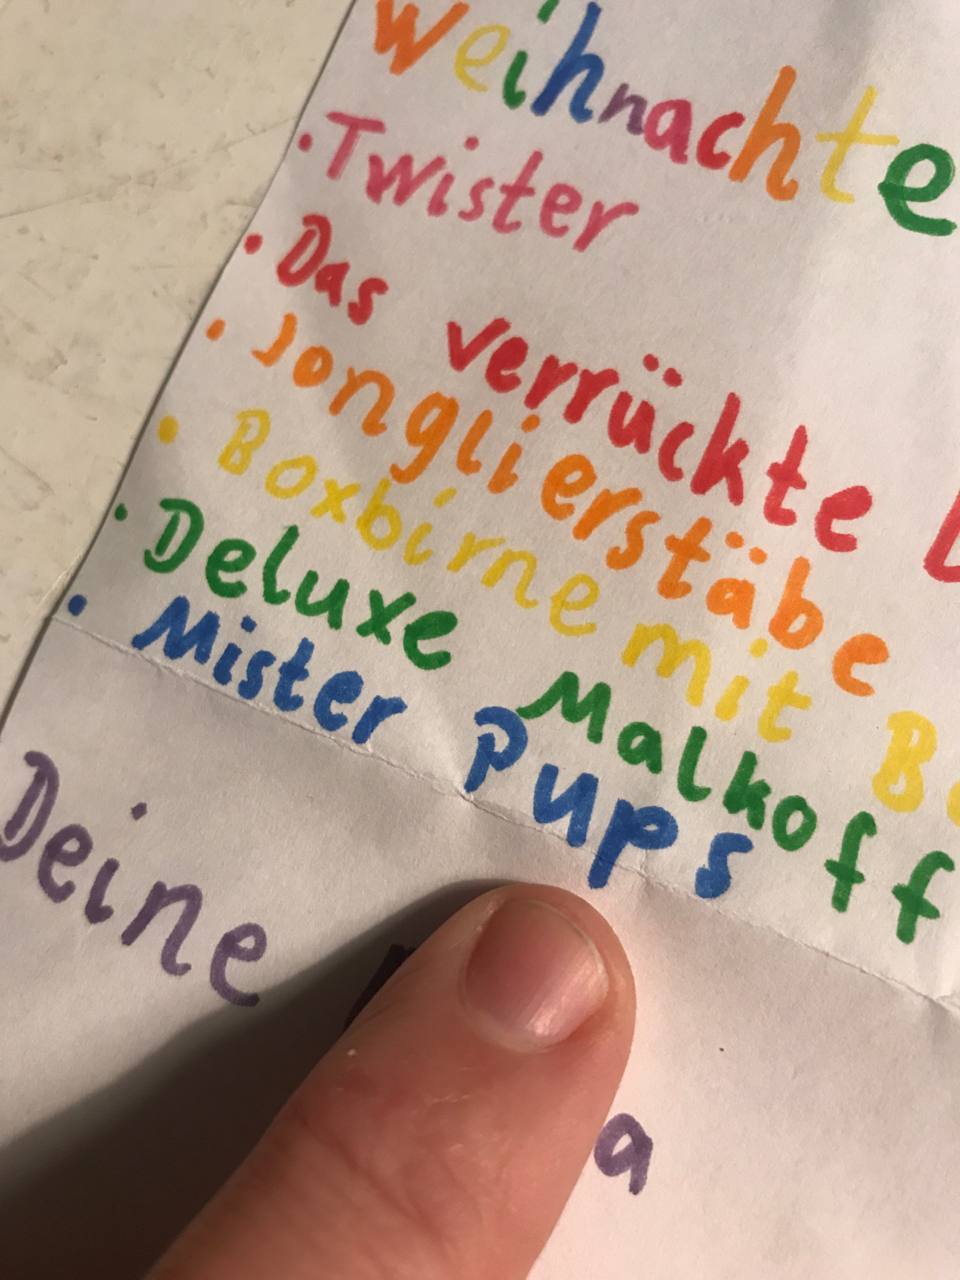 Weihnachte
• Twister
• Das verrückte
• Jonglierstäbe
• Boxbirne mit
• Deluxe Malkoff
• Mister Pups
Deine
a